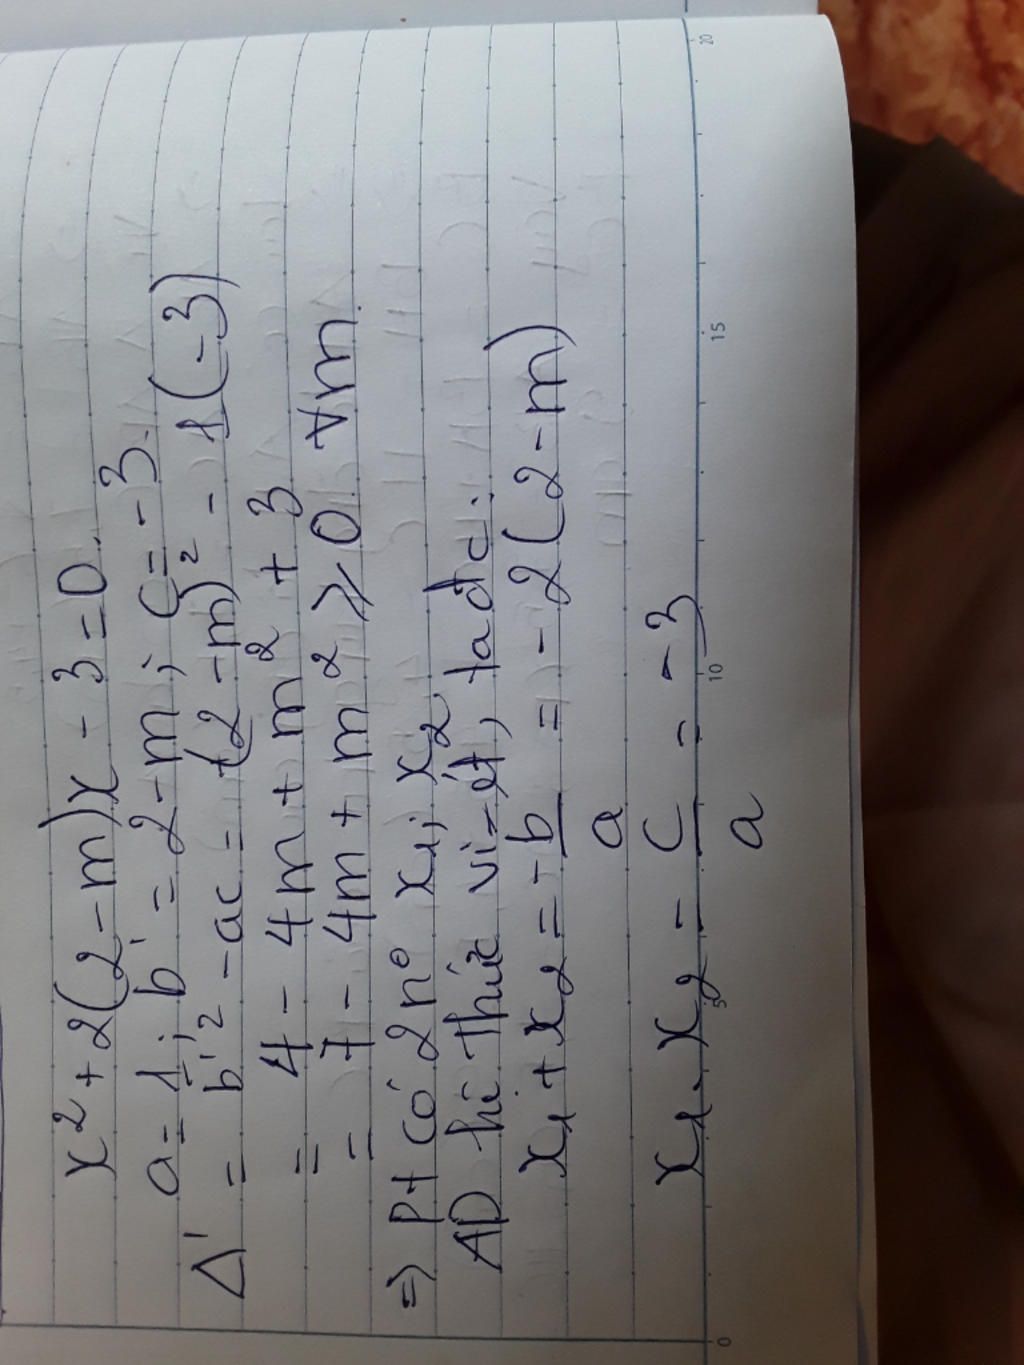 x² + 2(2-m)x - 3 = 0.
a = 1; b' = 2-m; c = -3.
Δ' = b'² - ac = (2-m)² - 1(-3)
= 4 - 4m + m² + 3
= 7 - 4m + m² ⩾ 0 ∀m.
⇒ pt có 2 n° x₁; x₂
AD hệ thức vi-ét, ta đc:
x₁ + x₂ = -b/a = -2(2-m)
x₁. x₂ = c/a = -3
0 5 10 15 20